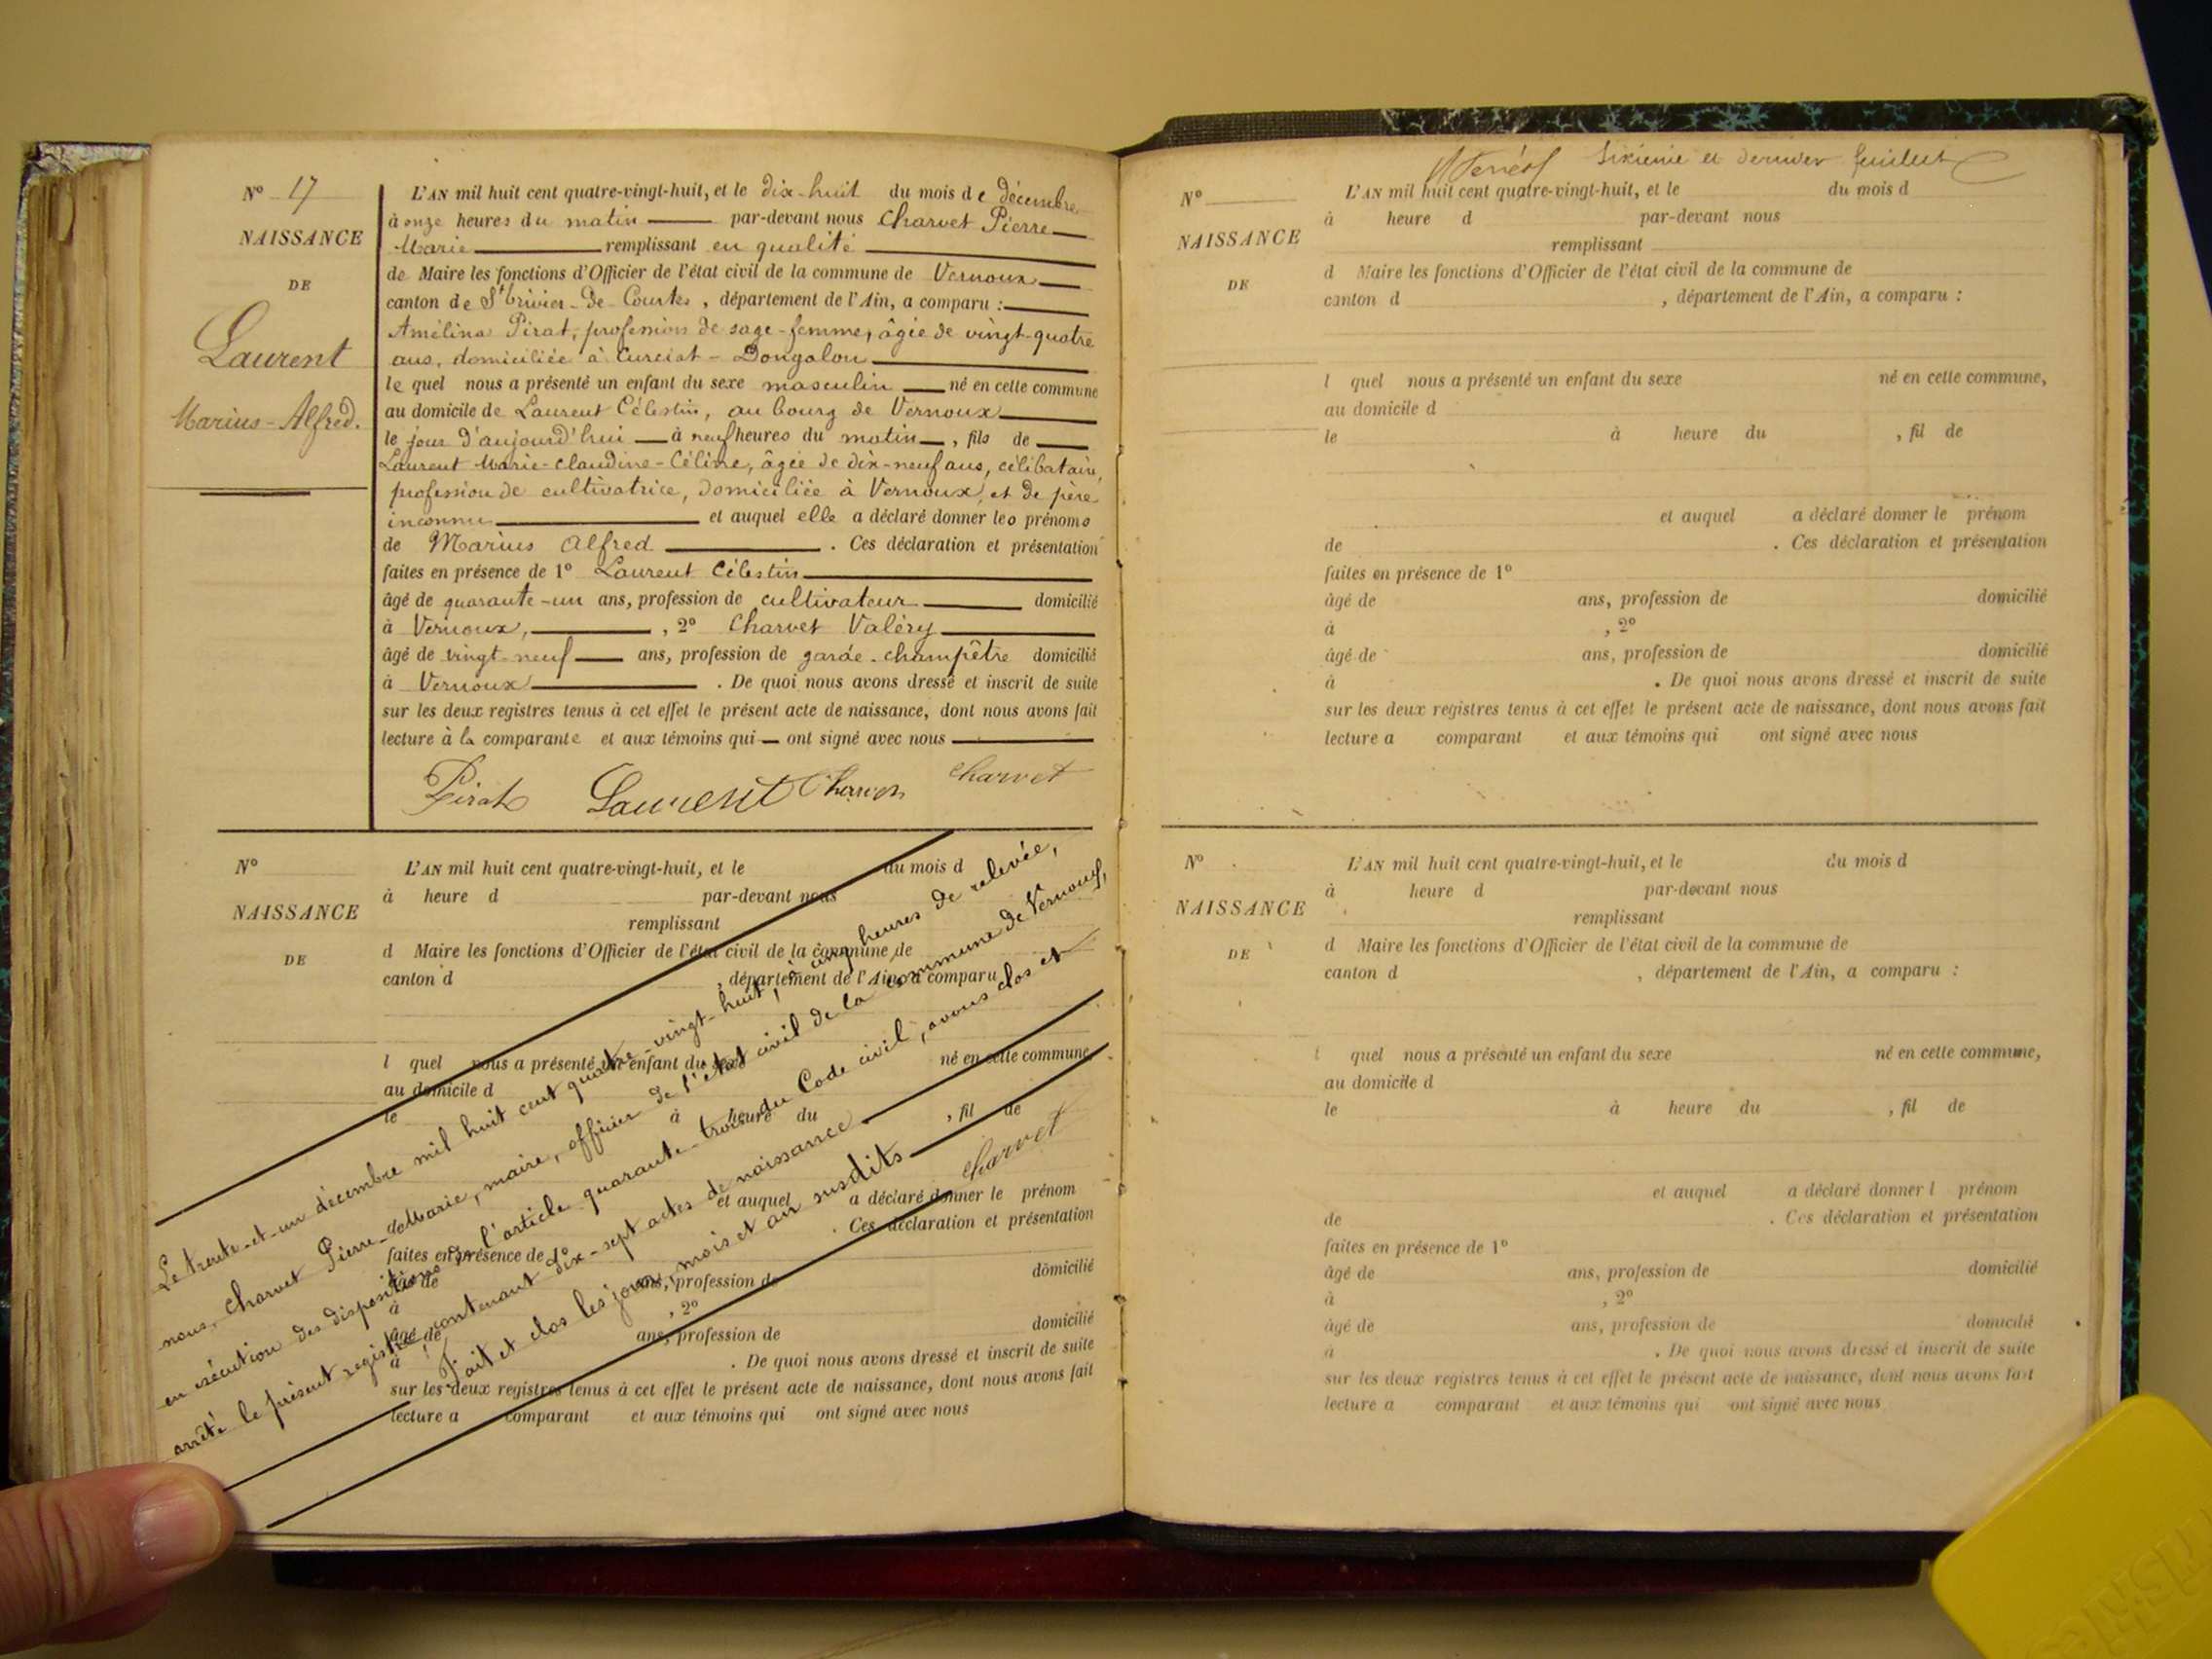 N° 17
NAISSANCE
DE
Laurent
Marius-Alfred.
L'AN mil huit cent quatre-vingt-huit, et le dix-huit du mois de décembre
à onze heures du matin par-devant nous Charvet Pierre
Marie remplissant en qualité
de Maire les fonctions d'Officier de l'état civil de la commune de Vernoux
canton de St Trivier-de-Courtes, département de l'Ain, a comparu :
Amélina Pirat, profession de sage-femme, âgée de vingt-quatre
ans, domiciliée à Curciat-Dongalon
le quel nous a présenté un enfant du sexe masculin né en cette commune
au domicile de Laurent Célestin, au bourg de Vernoux
le jour d'aujourd'hui à neuf heures du matin, fils de
Laurent Marie-Claudine-Céline, âgée de dix-neuf ans, célibataire,
profession de cultivatrice, domiciliée à Vernoux, et de père
inconnu et auquel elle a déclaré donner les prénoms
de Marius Alfred. Ces déclaration et présentation
faites en présence de 1° Laurent Célestin
âgé de quarante-un ans, profession de cultivateur domicilié
à Vernoux, , 2° Charvet Valéry
âgé de vingt-neuf ans, profession de garde-champêtre domicilié
à Vernoux. De quoi nous avons dressé et inscrit de suite
sur les deux registres tenus à cet effet le présent acte de naissance, dont nous avons fait
lecture à la comparante et aux témoins qui ont signé avec nous
Pirat Laurent Charvet Charvet
N°
NAISSANCE
DE
L'AN mil huit cent quatre-vingt-huit, et le du mois d
à heure d par-devant nous
remplissant
d Maire les fonctions d'Officier de l'état civil de la commune de
canton d , département de l'Ain, a comparu
l quel nous a présenté un enfant du sexe né en cette commune,
au domicile d
le à heure du , fil de
et auquel a déclaré donner le prénom
de . Ces déclaration et présentation
faites en présence de 1°
âgé de ans, profession de domicilié
à , 2°
âgé de ans, profession de domicilié
à . De quoi nous avons dressé et inscrit de suite
sur les deux registres tenus à cet effet le présent acte de naissance, dont nous avons fait
lecture a comparant et aux témoins qui ont signé avec nous
Le trente-et-un décembre mil huit cent quatre-vingt-huit, à cinq heures de relevée,
nous, Charvet Pierre-Marie, maire, officier de l'état civil de la commune de Vernoux,
en exécution des dispositions de l'article quarante-trois du Code civil, avons clos et
arrêté le présent registre, contenant dix-sept actes de naissance
Fait et clos les jour, mois et an susdits
Charvet
Sixième et dernier feuillet
N°
NAISSANCE
DE
L'AN mil huit cent quatre-vingt-huit, et le du mois d
à heure d par-devant nous
remplissant
d Maire les fonctions d'Officier de l'état civil de la commune de
canton d , département de l'Ain, a comparu :
l quel nous a présenté un enfant du sexe né en cette commune,
au domicile d
le à heure du , fil de
et auquel a déclaré donner le prénom
de . Ces déclaration et présentation
faites en présence de 1°
âgé de ans, profession de domicilié
à , 2°
âgé de ans, profession de domicilié
à . De quoi nous avons dressé et inscrit de suite
sur les deux registres tenus à cet effet le présent acte de naissance, dont nous avons fait
lecture a comparant et aux témoins qui ont signé avec nous
N°
NAISSANCE
DE
L'AN mil huit cent quatre-vingt-huit, et le du mois d
à heure d par-devant nous
remplissant
d Maire les fonctions d'Officier de l'état civil de la commune de
canton d , département de l'Ain, a comparu :
l quel nous a présenté un enfant du sexe né en cette commune,
au domicile d
le à heure du , fil de
et auquel a déclaré donner l prénom
de . Ces déclaration et présentation
faites en présence de 1°
âgé de ans, profession de domicilié
à , 2°
âgé de ans, profession de domicilié
à . De quoi nous avons dressé et inscrit de suite
sur les deux registres tenus à cet effet le présent acte de naissance, dont nous avons fait
lecture a comparant et aux témoins qui ont signé avec nous